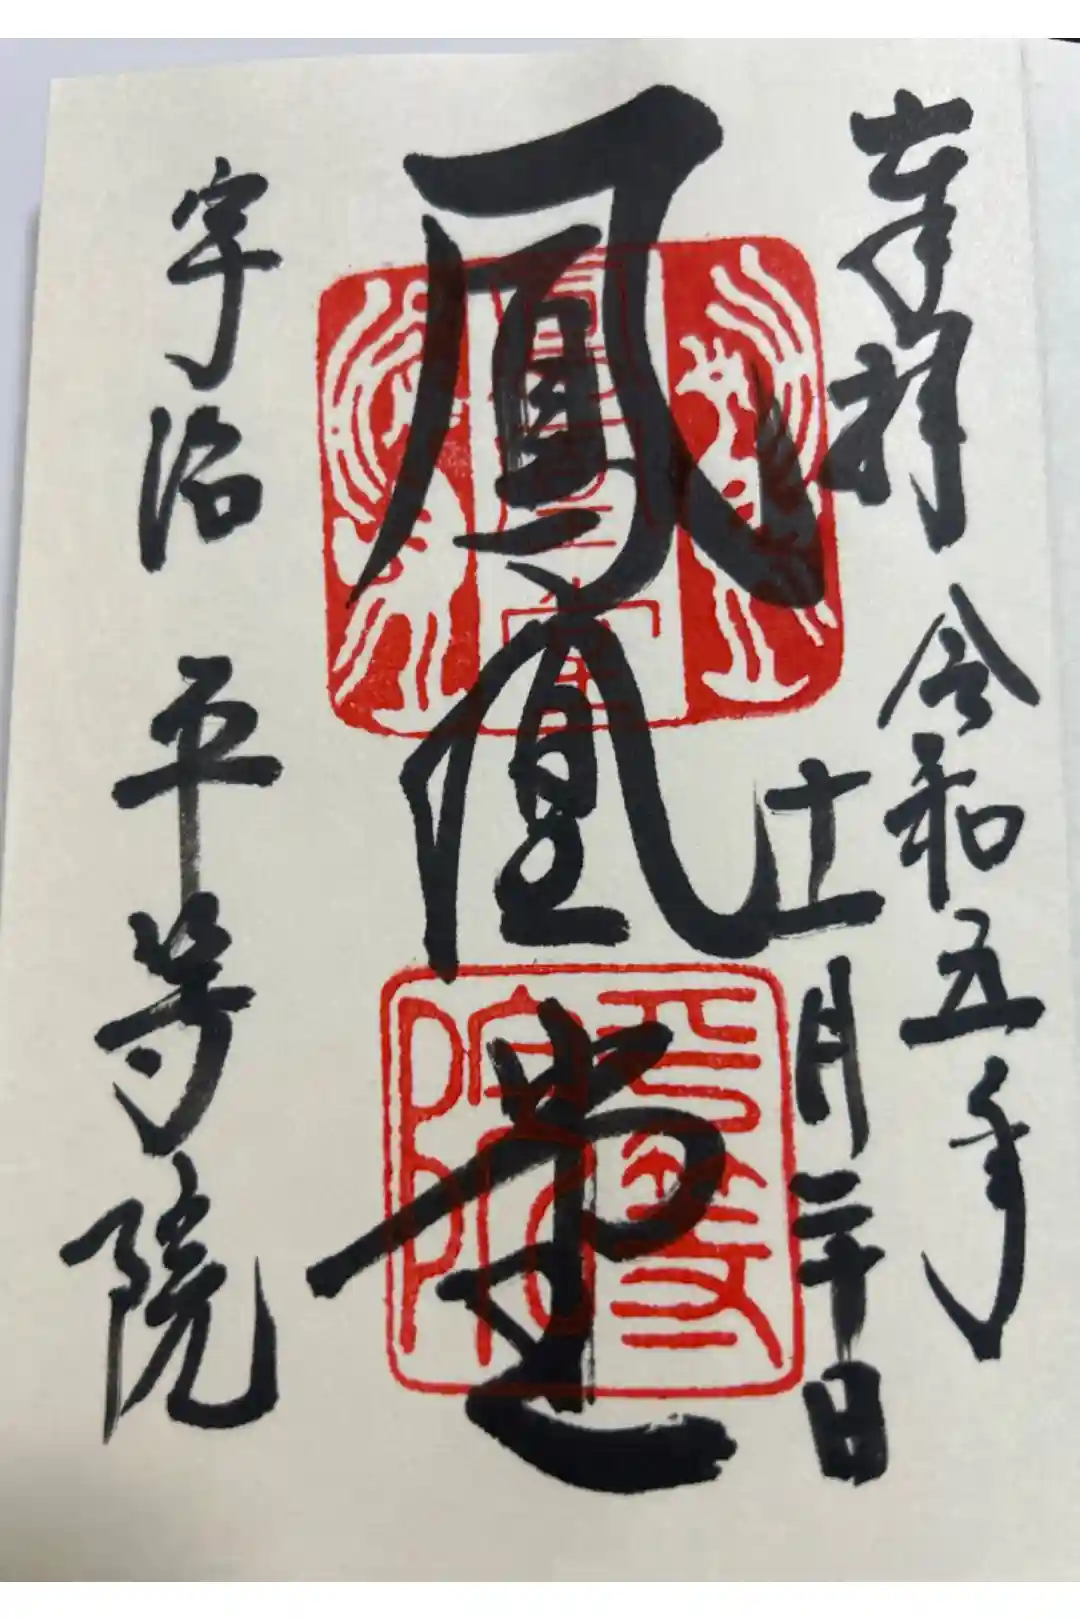 奉拝
令和五年
十一月二十日
鳳凰堂
宇治 平等院
平等院